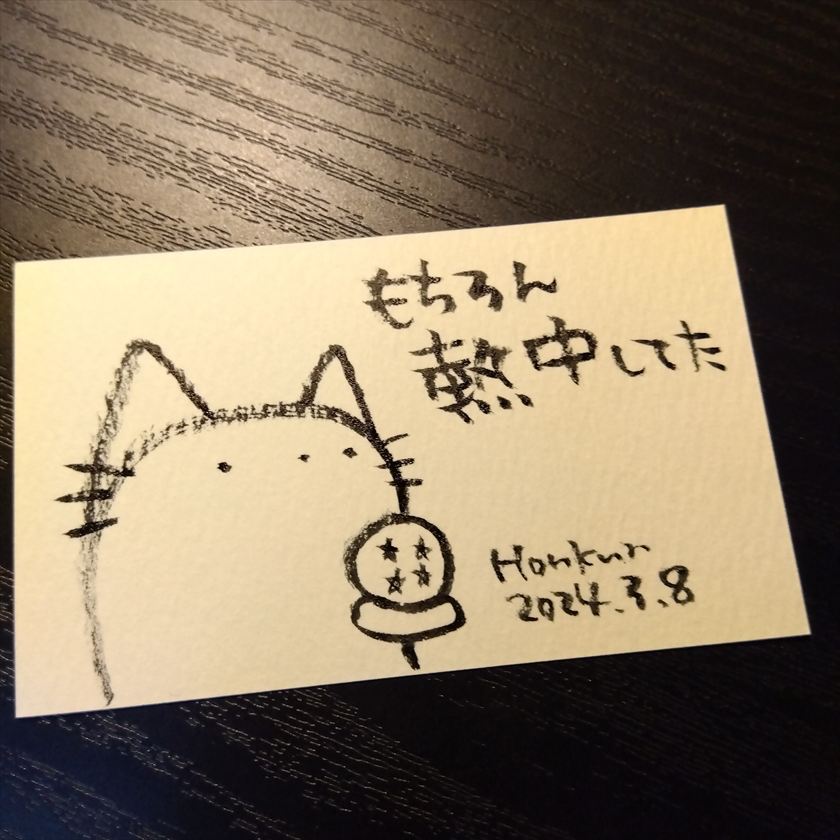 もちろん
熱中してた
Honkun
2024.3.8